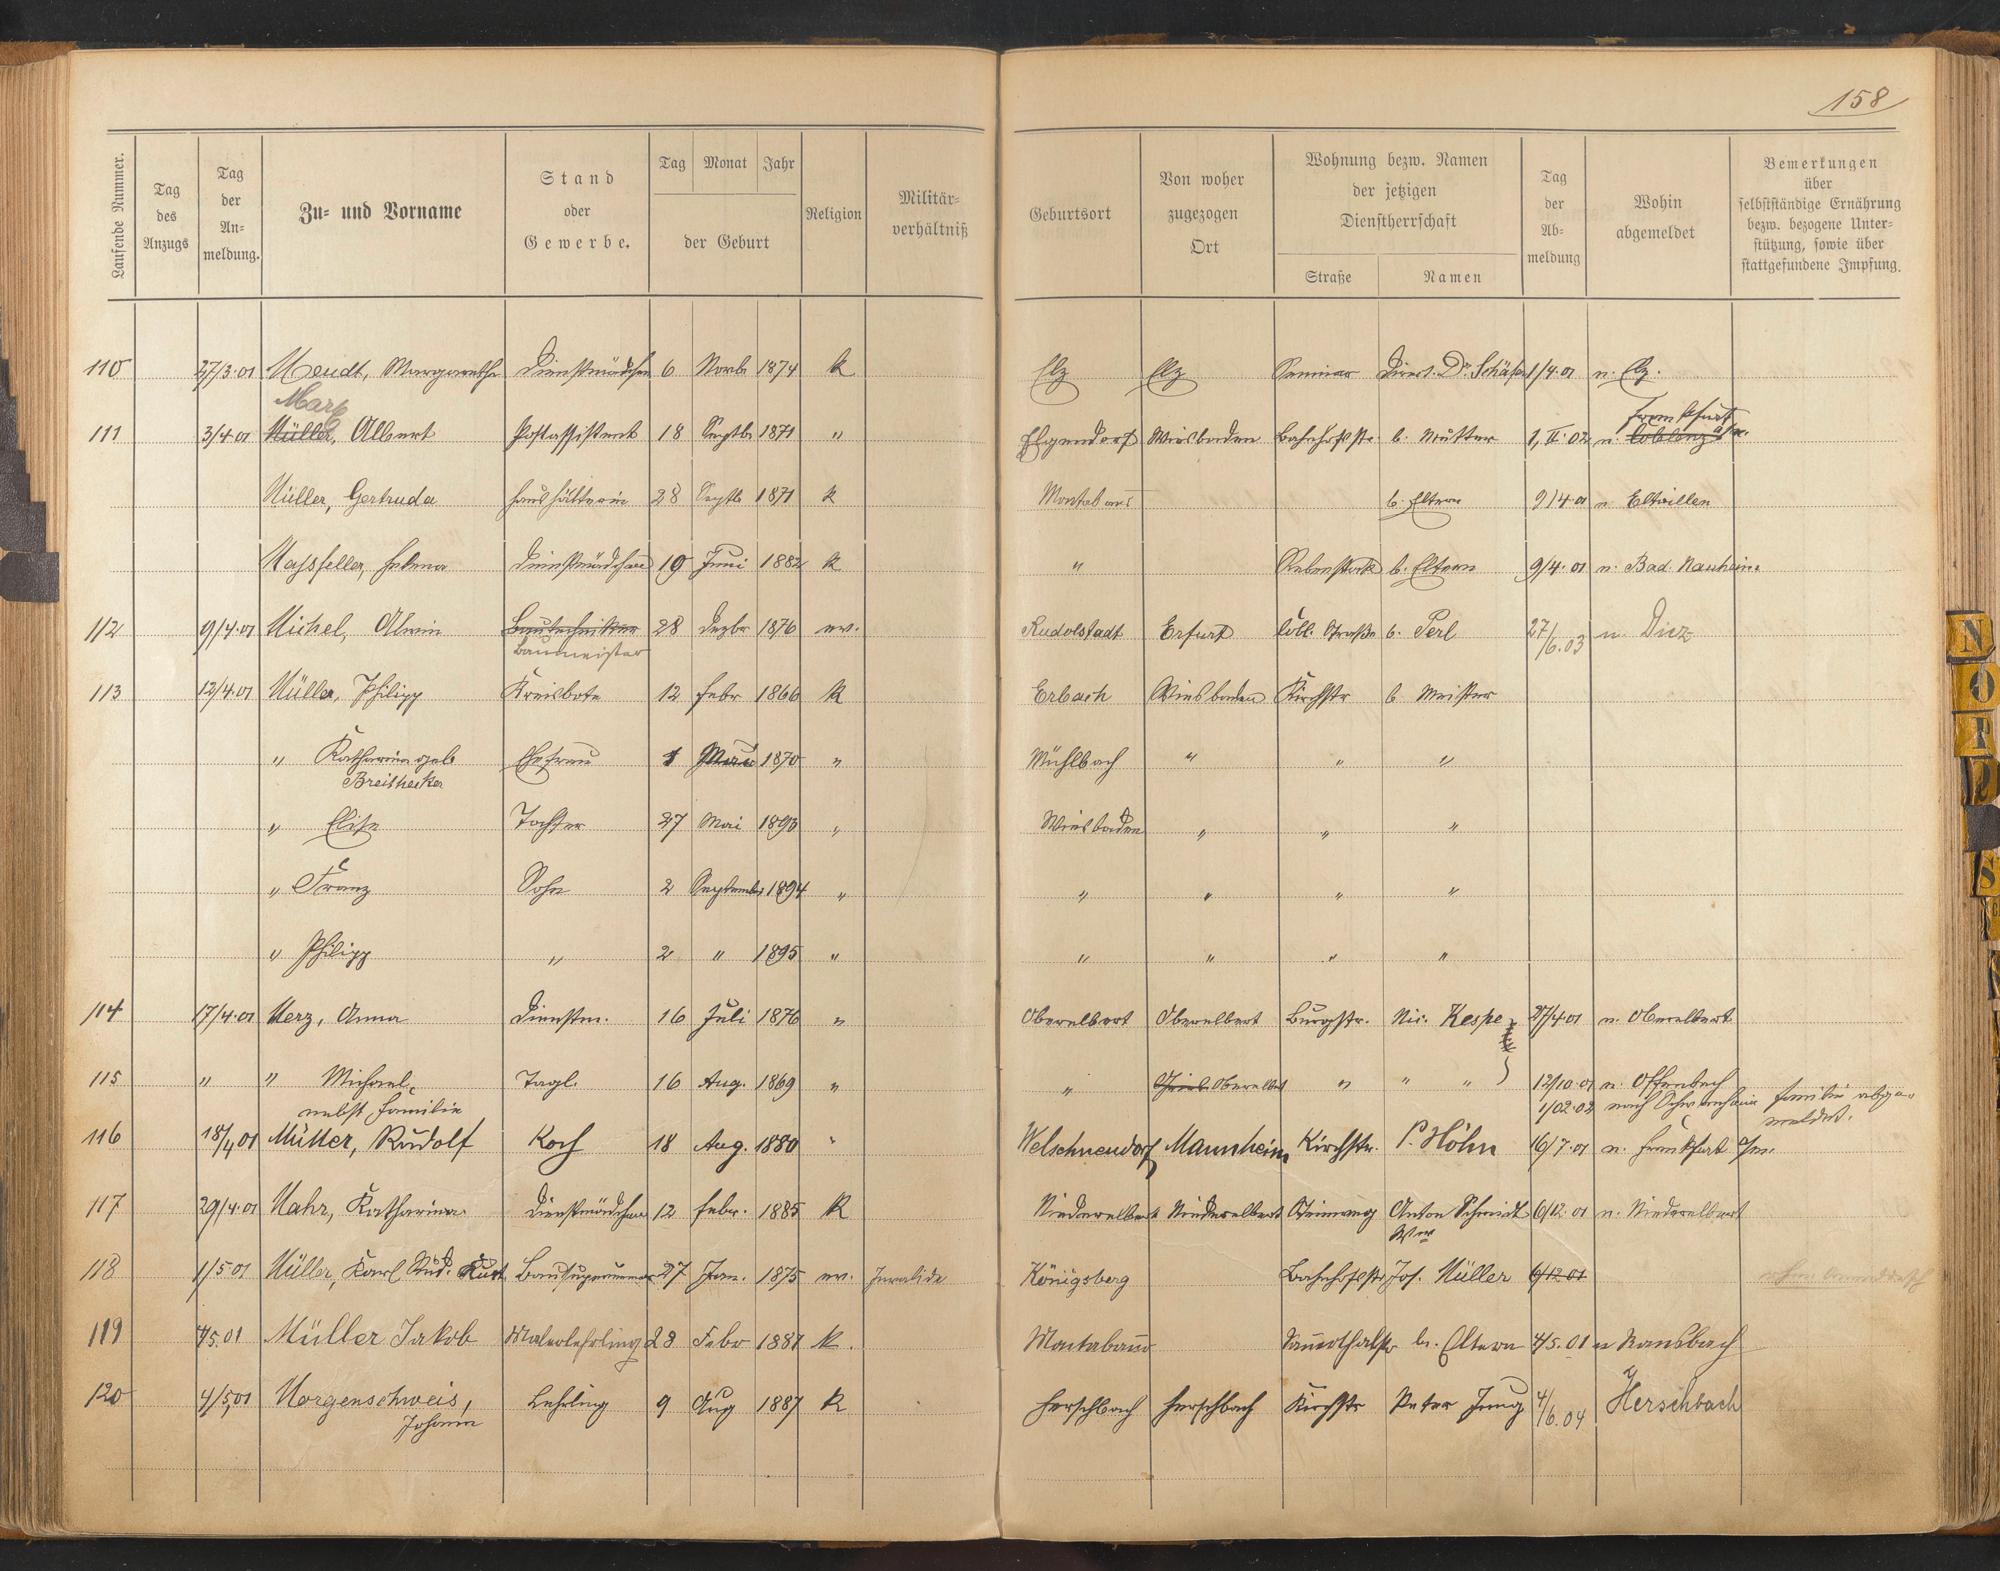 158
Laufende Nummer. Tag des Anzugs Tag der Anmeldung. Zu- und Vorname Stand oder Gewerbe. Tag Monat Jahr der Geburt Religion Militärverhältniß Geburtsort Von woher zugezogen Ort Wohnung bezw. Namen der jetzigen Dienstherrschaft Straße Namen Tag der Abmeldung Wohin abgemeldet Bemerkungen über selbstständige Ernährung bezw. bezogene Unterstützung, sowie über stattgefundene Impfung.
110 27/3.01 Mendt, Margarethe Dienstmädchen 6 Novb 1874 K Elz Elz Seminar Direct. Dr. Schäfer 1/4.01 n. Elz.
Marx Frankfurt a/m.
111 3/4.01 Müller, Albert Postassistent 18 Septb 1871 " Elgendorf Wiesbaden Bahnhofstr. b. Mutter 1.II.02 n. Coblenz
Müller, Gertruda Haushälterin 28 Septb 1871 K Montabaur b. Eltern 9/4.01 n. Eltvillen
Massfeller, Helena Dienstmädchen 19 Juni 1882 K " Rebenstock b. Eltern 9/4.01 n. Bad Nauheim.
112 9/4.01 Michel, Alwin Bautechniker 28 Dezbr 1876 ev. Rudolstadt Erfurt Cobl. Straße b. Perl 27/6.03 n. Diez
Baumeister
113 12/4.01 Müller, Philipp Kreisbote 12 Febr 1866 K Erbach Wiesbaden Kirchstr b Meister
" Katharina geb Ehefrau 1 1870 " Mühlbach " " "
Breithecker
" Elise Tochter 27 Mai 1893 " Wiesbaden " " "
" Franz Sohn 2 Septembr 1894 " " " " "
" Philipp " 2 " 1895 " " " " "
114 17/4.01 Merz, Anna Dienstm. 16 Juli 1876 " Oberelbert Oberelbert Burgstr. Nic. Kespe 27/4.01 n. Oberelbert
115 " " Michael, Tagl. 16 Aug. 1869 " " Oberelbert " " " 12/10.01 n. Offenbach
nebst Familie 1/02.02 nach Schwanheim Familie abgemeldet.
116 18/4.01 Müller, Rudolf Koch 18 Aug. 1880 " Welschneudorf Mannheim Kirchstr. P. Höhn 16/7.01 n. Frankfurt a/m.
117 29/4.01 Mahr, Katharina Dienstmädchen 12 Febr. 1885 K Niederelbert Niederelbert Steinweg Anton Schmidt Wwe 6/12.01 n. Niederelbert
118 1/5.01 Müller, Karl Rud. Kurt Bausupernumerar 27 Jan. 1875 ev. Invalide Königsberg Bahnhofstr Jos. Müller 6/12.01
119 4/5.01 Müller Jakob Malerlehrling 28 Febr 1887 K. Montabaur Sauerthalstr b. Eltern 4/5.01 n Ransbach
120 4/5.01 Morgenschweis, Lehrling 9 Aug 1887 K Herschbach Herschbach Kirchstr Peter Jung 4/6.04 Herschbach
Johann
N
O
P
S